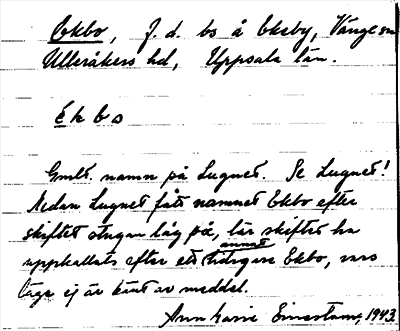 Ekbo, f.d. bs å Ekeby, Vänge sn
Ulleråkers hd, Uppsala län.
Ekbo
Gmlt. namn på Lugnet. Se Lugnet!
Nedan Lugnet fått namnet Ekbo efter
skiftet stugan låg på, lär skiftet ha
uppkallats efter ett annat tidigare Ekbo, vars
läge ej är känt av meddel.
Ann Marie 1943.